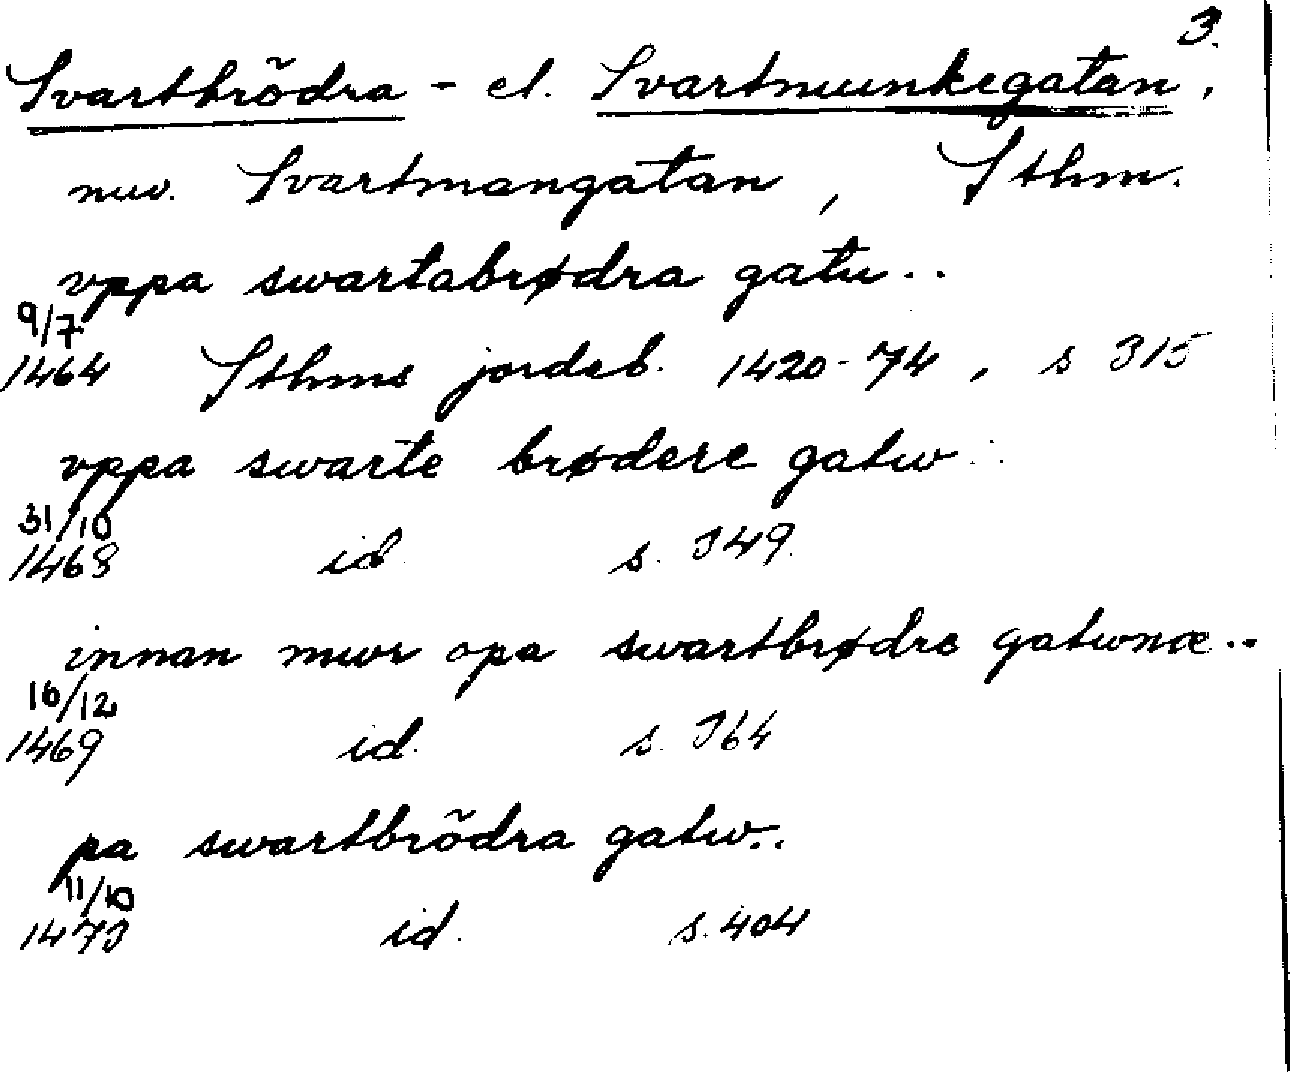 3.
Svartbrödra - el. Svartmunkegatan,
nuv. Svartmangatan, Sthm.
vppa swartabrødra gatu..
9/7
1464 Sthms jordeb. 1420-74, s 315
vppa swarte brødere gatw..
31/10
1468 id s. 349.
innan mwr opa swartbrødre gatwnæ..
16/12
1469 id. s. 364
pa swartbrödra gatw..
11/10
1473 id. s. 404